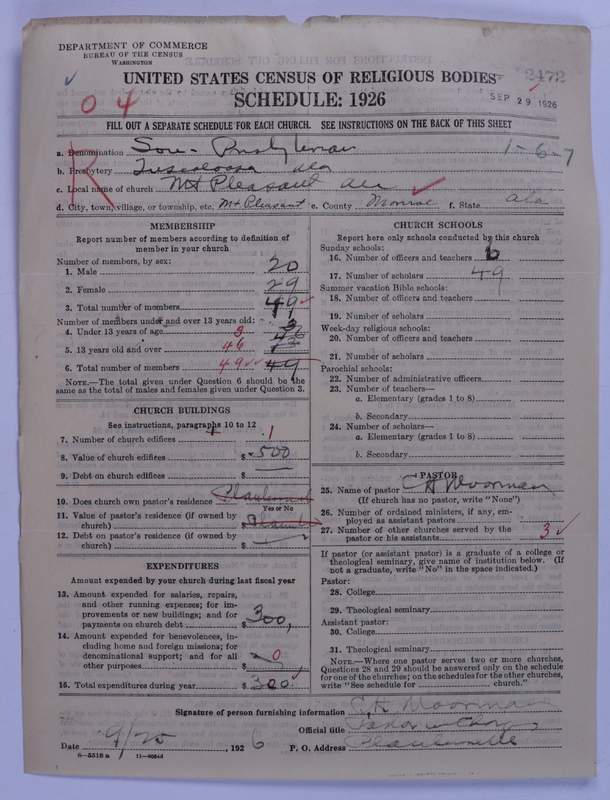 DEPARTMENT OF COMMERCE
BUREAU OF THE CENSUS
WASHINGTON
UNITED STATES CENSUS OF RELIGIOUS BODIES
2472
SCHEDULE: 1926
SEP 29 1926
04
FILL OUT A SEPARATE SCHEDULE FOR EACH CHURCH. SEE INSTRUCTIONS ON THE BACK OF THIS SHEET
R
1-6-7
a. Denomination Sou- Presbyterian
b. Presbytery Tuscaloosa Ala
c. Local name of church Mt Pleasant Ala
d. City, town, village, or township, etc. Mt Pleasant e. County Monroe f. State Ala
MEMBERSHIP
Report number of members according to definition of
member in your church
Number of members, by sex:
1. Male 20
2. Female 29
3. Total number of members 49
Number of members under and over 13 years old:
4. Under 13 years of age 3
5. 13 years old and over 46
6. Total number of members 49 49
NOTE.—The total given under Question 6 should be the
same as the total of males and females given under Question 3.
CHURCH BUILDINGS
See instructions, paragraphs 10 to 12
7. Number of church edifices 1
8. Value of church edifices $ 500
9. Debt on church edifices $
10. Does church own pastor's residence
Yes or No
11. Value of pastor's residence (if owned by
church) $
12. Debt on pastor's residence (if owned by
church) $
EXPENDITURES
Amount expended by your church during last fiscal year
13. Amount expended for salaries, repairs,
and other running expenses; for im-
provements or new buildings; and for
payments on church debt $ 300,
14. Amount expended for benevolences, in-
cluding home and foreign missions; for
denominational support; and for all
other purposes $ 0
15. Total expenditures during year $ 300
CHURCH SCHOOLS
Report here only schools conducted by this church
Sunday schools:
16. Number of officers and teachers 6
17. Number of scholars 49
Summer vacation Bible schools:
18. Number of officers and teachers
19. Number of scholars
Week-day religious schools:
20. Number of officers and teachers
21. Number of scholars
Parochial schools:
22. Number of administrative officers
23. Number of teachers—
a. Elementary (grades 1 to 8)
b. Secondary
24. Number of scholars—
a. Elementary (grades 1 to 8)
b. Secondary
PASTOR
25. Name of pastor C H Moorman
(If church has no pastor, write "None")
26. Number of ordained ministers, if any, em-
ployed as assistant pastors
27. Number of other churches served by the
pastor or his assistants 3
If pastor (or assistant pastor) is a graduate of a college or
theological seminary, give name of institution below. (If
not a graduate, write "No" in the space indicated.)
Pastor:
28. College
29. Theological seminary
Assistant pastor:
30. College
31. Theological seminary
NOTE.—Where one pastor serves two or more churches,
Questions 28 and 29 should be answered only on the schedule
for one of the churches; on the schedules for the other churches,
write "See schedule for church."
Signature of person furnishing information C H Moorman
Official title
Date 9/20, 1926 P. O. Address
8-5518 a